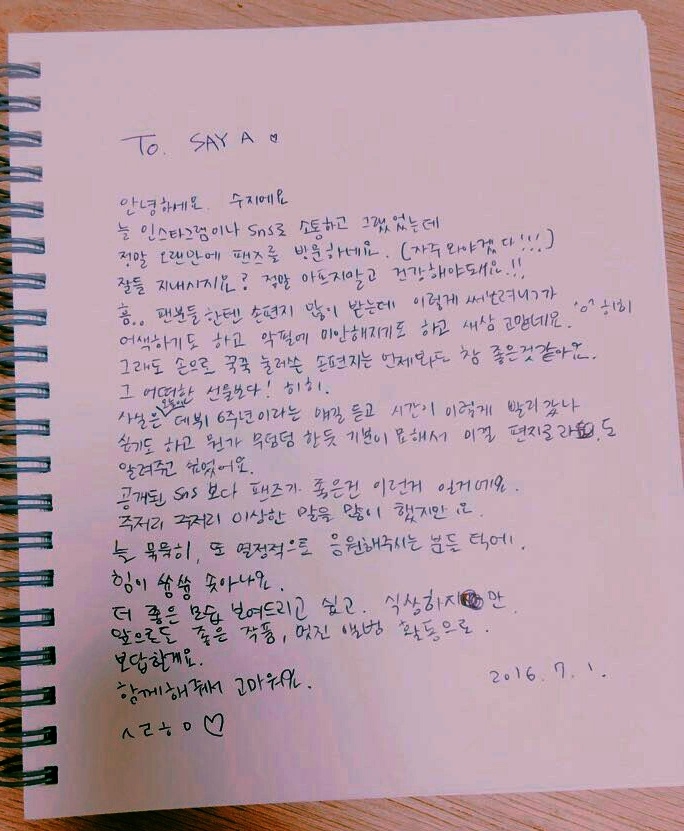 To. SAY A ♡
안녕하세요. 수지에요
늘 인스타그램이나 sns로 소통하고 그랬었는데
정말 오랜만에 팬즈를 방문하네요. (자주 와야겠다!!!)
잘들 지내시지요? 정말 아프지말고 건강해야돼요!!
흠.. 팬분들한텐 손편지 많이 받는데 이렇게 써내려니까
어색하기도 하고 악필에 미안해지기도 하고 새삼 고맙네요. ^o^ 히히
그래도 손으로 꾹꾹 눌러쓴 손편지는 언제봐도 참 좋은것같아요.
그 어떠한 선물보다! 히히.
사실은 오늘이 데뷔 6주년이라는 얘길 듣고 시간이 이렇게 빨리 갔나
싶기도 하고 뭔가 무덤덤 한듯 기분이 묘해서 이걸 편지로라도
알려주고 싶었어요.
공개된 sns 보다 팬즈가 좋은건 이런거 일거에요.
주저리 주저리 이상한 말을 많이 했지만요.
늘 묵묵히, 또 열정적으로 응원해주시는 분들 덕에.
힘이 쑹쑹 솟아나요.
더 좋은 모습 보여드리고 싶고. 식상하지만.
앞으로도 좋은 작품, 멋진 앨범 활동으로.
보답할게요.
함께해줘서 고마워요.
2016. 7. 1.
ㅅㄹㅎㅇ ♡